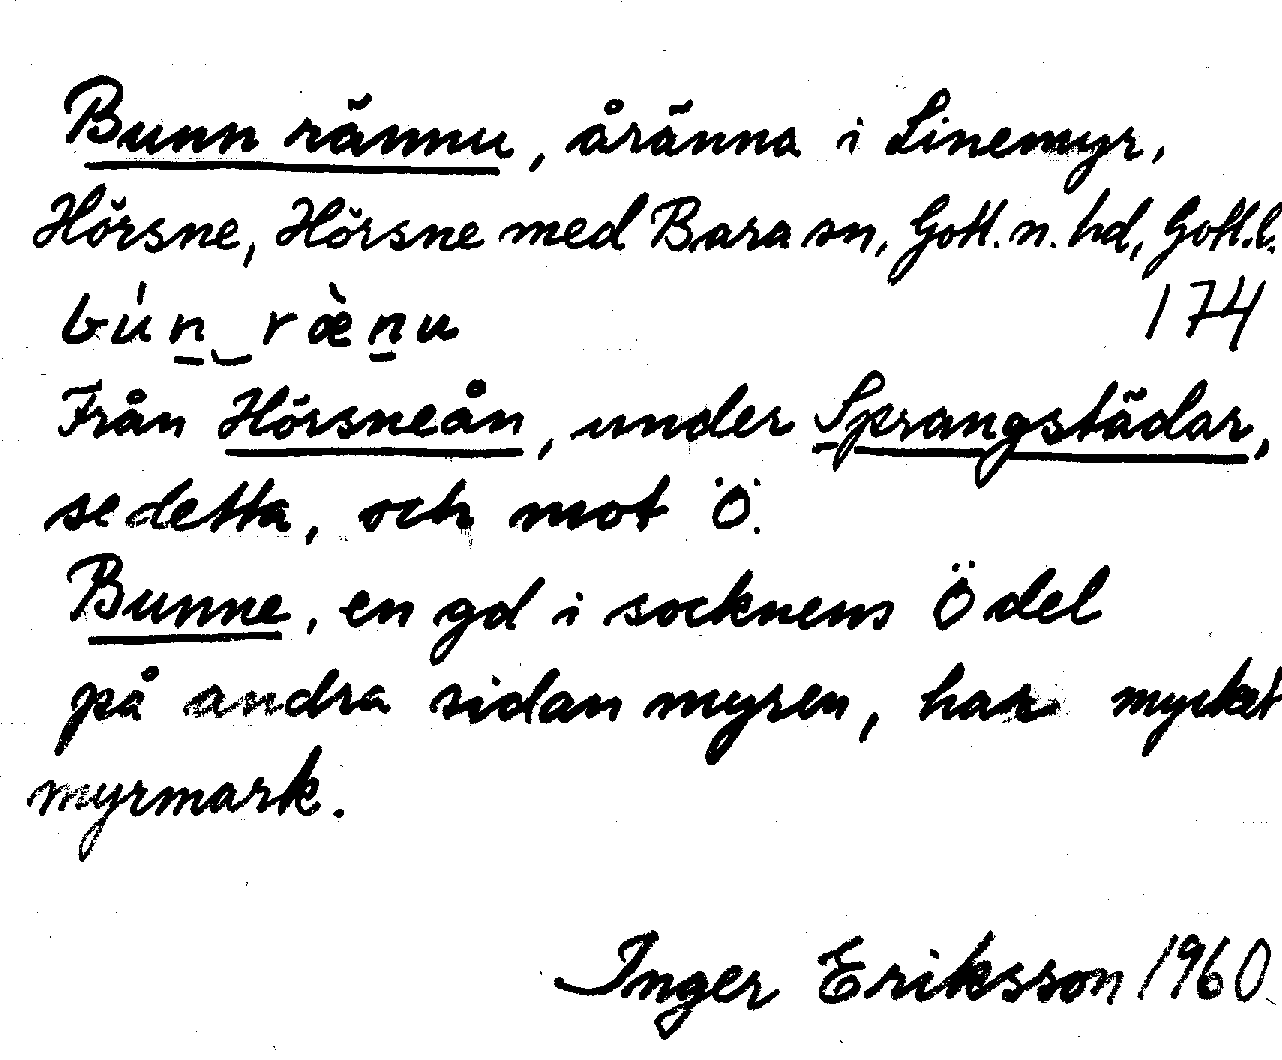 Bunn rännu, åränna i Linemyr,
Hörsne, Hörsne med Bara sn, Gotl. n. hd, Gotl. l.
bún̲‿ræ̀n̲u 174
Från Hörsneån, under Sprangstädar,
se detta, och mot Ö.
Bunne, en gd i socknens Ö del
på andra sidan myren, har mycket
myrmark.
Inger Eriksson 1960